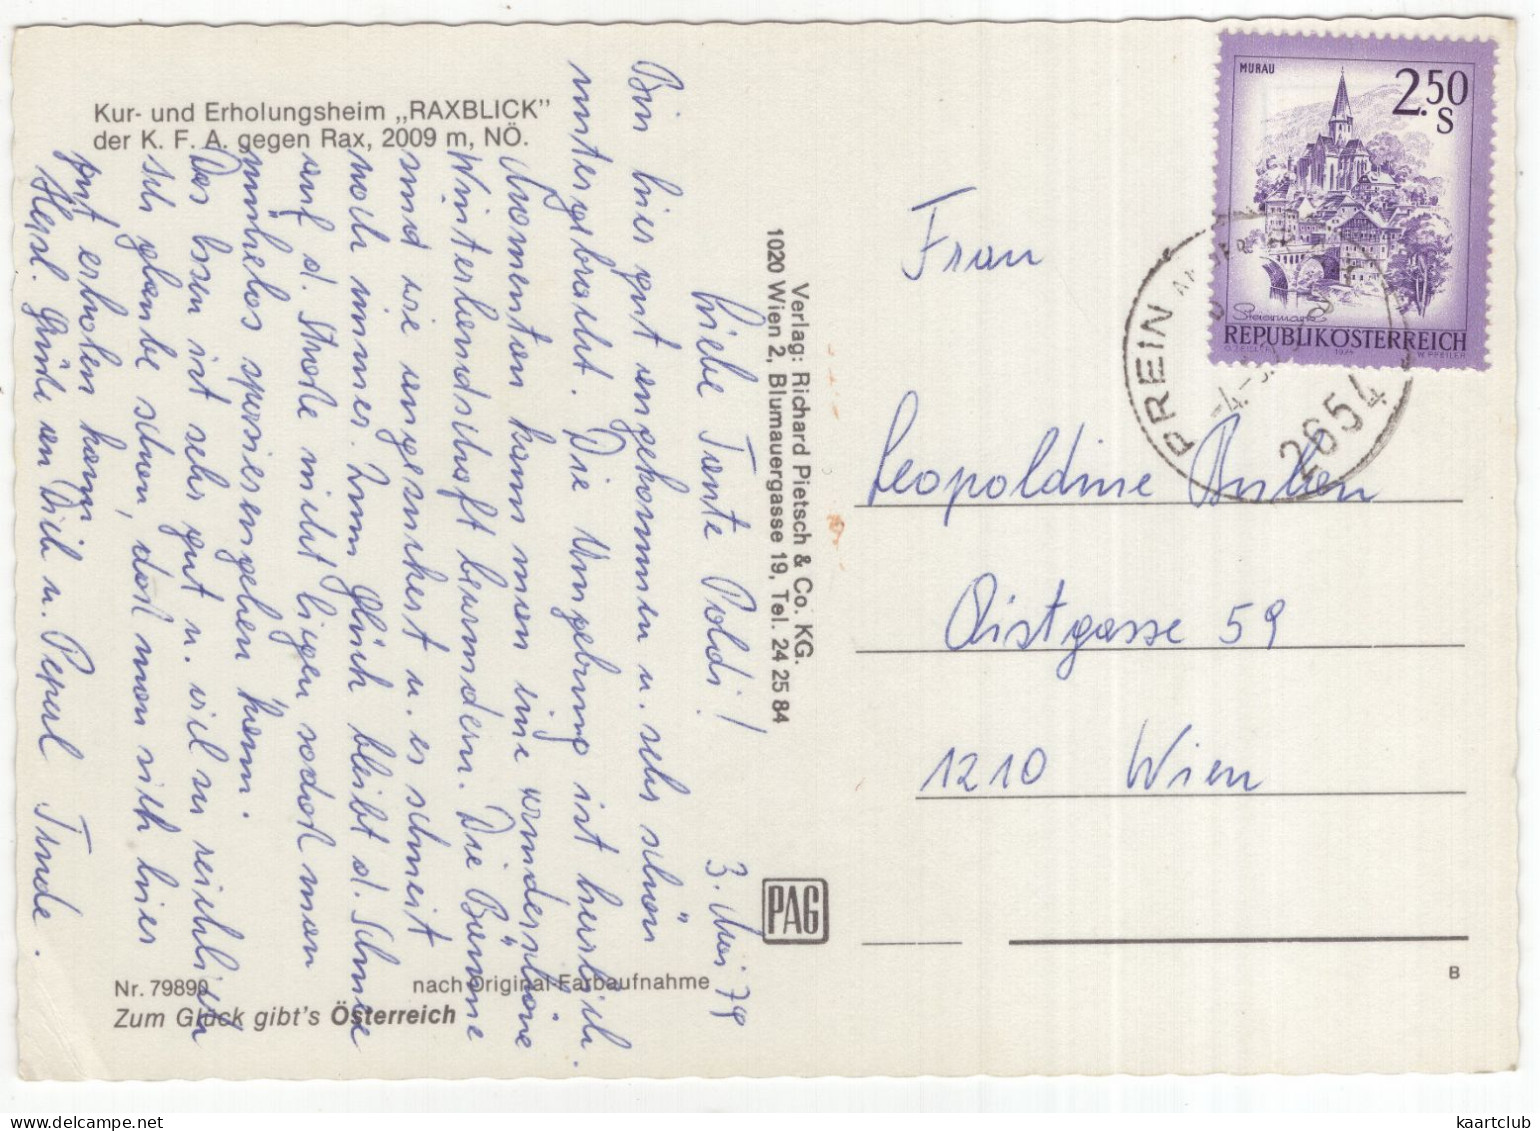 Kur- und Erholungsheim „RAXBLICK"
der K. F. A. gegen Rax, 2009 m, NÖ.
3. Mai 79
Liebe Tante Poldi!
Bin hier gut angekommen u. sehr schön
untergebracht. Die Umgebung ist herrlich.
Momentan kann man eine wunderschöne
Winterlandschaft bewundern. Die Bäume
sind wie angezuckert u. es schneit
noch immer. Zum Glück bleibt d. Schnee
auf d. Straße nicht liegen sodaß man
mühelos spazierengehen kann.
Das Essen ist sehr gut u. viel zu reichlich
ich glaube schon, daß man sich hier
gut erholen kann.
Herzl. Grüße an Dich u. Peperl Trude.
Nr. 79890
nach Original Farbaufnahme
Zum Glück gibt's Österreich
Verlag: Richard Pietsch & Co. KG.
1020 Wien 2, Blumauergasse 19, Tel. 24 25 84
PAG
MURAU
2.50
S
Steiermark
REPUBLIK ÖSTERREICH
W. PFEILER
PREIN AN DER RAX
2654
Frau
Leopoldine
Aistgasse 59
1210 Wien
B
kaartclub